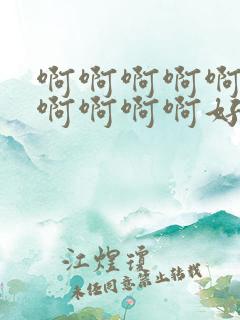 啊啊啊啊啊
啊啊啊啊好
江煌琼
未经同意禁止转载